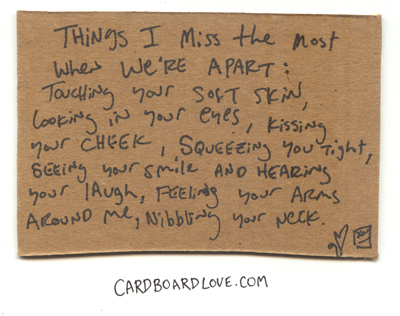 Things I Miss the Most
when WE'RE APART:
Touching your SOFT SKIN,
Looking in your eyes, kissing
your CHEEK, SQUEEZING you Tight,
SEEING your smile AND HEARING
your laugh, FEELING your ARMS
AROUND me, Nibbling your NECK.
CARDBOARDLOVE.COM